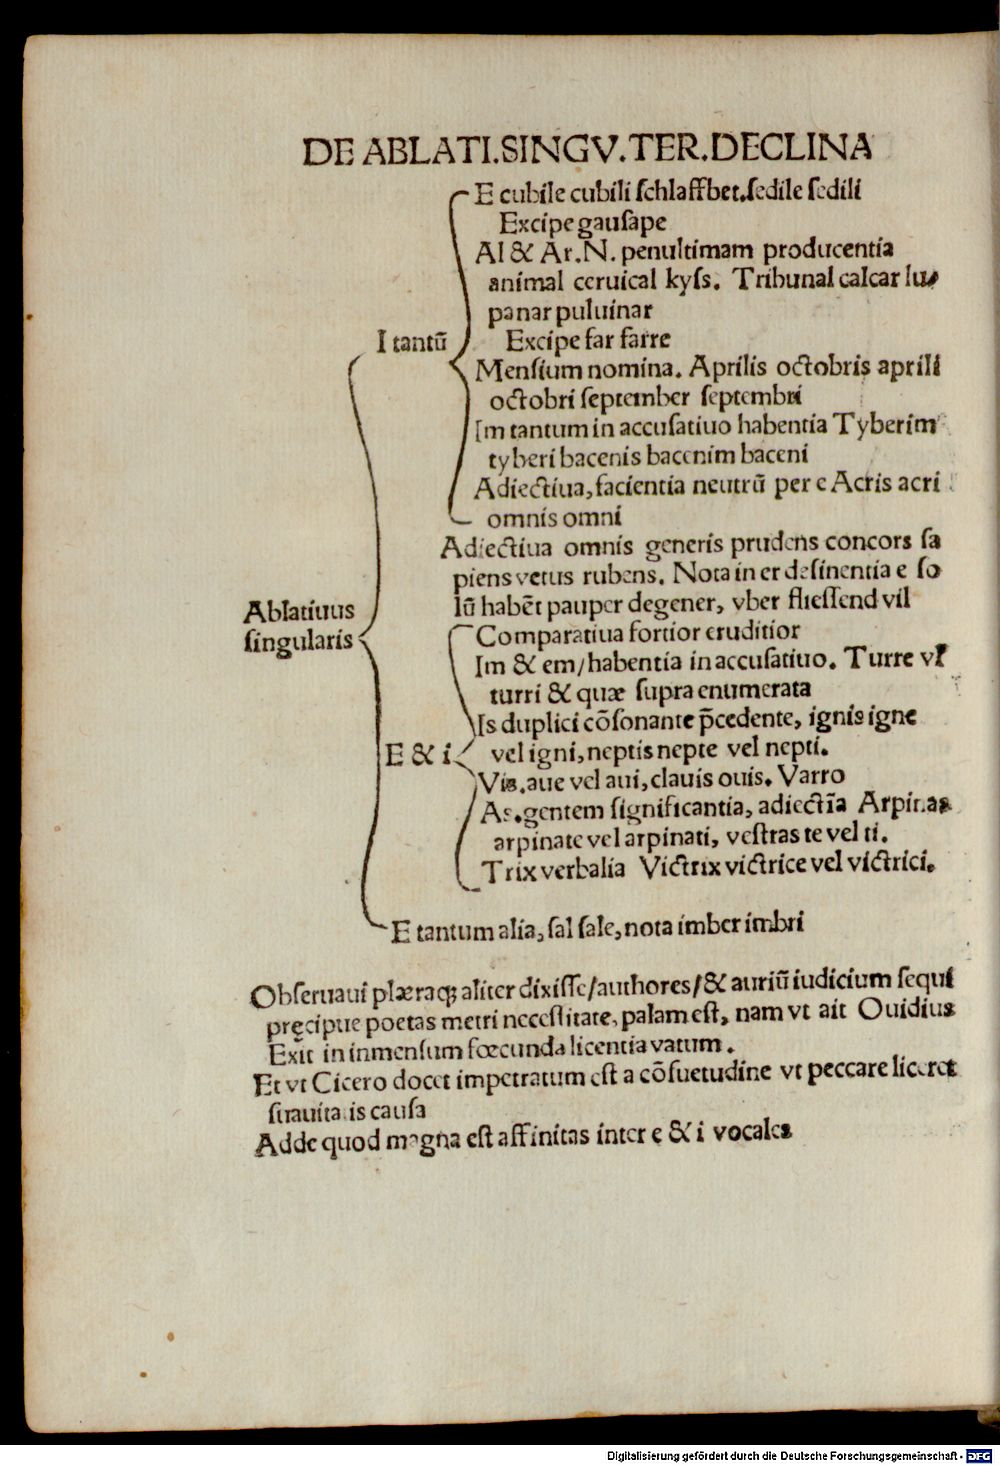 DE ABLATI.SINGV.TER.DECLINA
E cubile cubili ſchlaffbet.ſedile ſedili
Excipe gauſape
Al & Ar.N. penultimam producentia
animal ceruical kyſs. Tribunal calcar lu
panar puluinar
I tantū
Excipe far farre
Menſium nomina. Aprilis octobris aprili
octobri ſeptember ſeptembri
Im tantum in accuſatiuo habentia Tyberim
tyberi bacenis bacenim baceni
Adiectiua, facientia neutrū per e Acris acri
omnis omni
Adiectiua omnis generis prudens concors ſa
piens vetus rubens. Nota in er deſinentia e ſo
lū habēt pauper degener, vber flieſſend vil
Ablatiuus
ſingularis
Comparatiua fortior eruditior
Im & em/habentia in accuſatiuo. Turre vl
turri & quæ ſupra enumerata
Is duplici cōſonante p̄cedente, ignis igne
E & i
vel igni, neptis nepte vel nepti.
Vis.aue vel aui, clauis ouis. Varro
As.gentem ſignificantia, adiectīa Arpinas
arpinate vel arpinati, veſtras te vel ti.
Trix verbalia Victrix victrice vel victrici.
E tantum alia, ſal ſale, nota imber imbri
Obſeruaui plæraqꝫ aliter dixiſſe/authores/& auriū iudicium ſequi
pręcipue poetas metri neceſſitate, palam eſt, nam vt ait Ouidius
Exit in inmenſum fœcunda licentia vatum.
Et vt Cicero docet impetratum eſt a cōſuetudine vt peccare liceret
ſuauitatis cauſa
Adde quod magna eſt affinitas inter e & i vocales
Digitalisierung gefördert durch die Deutsche Forschungsgemeinschaft - DFG